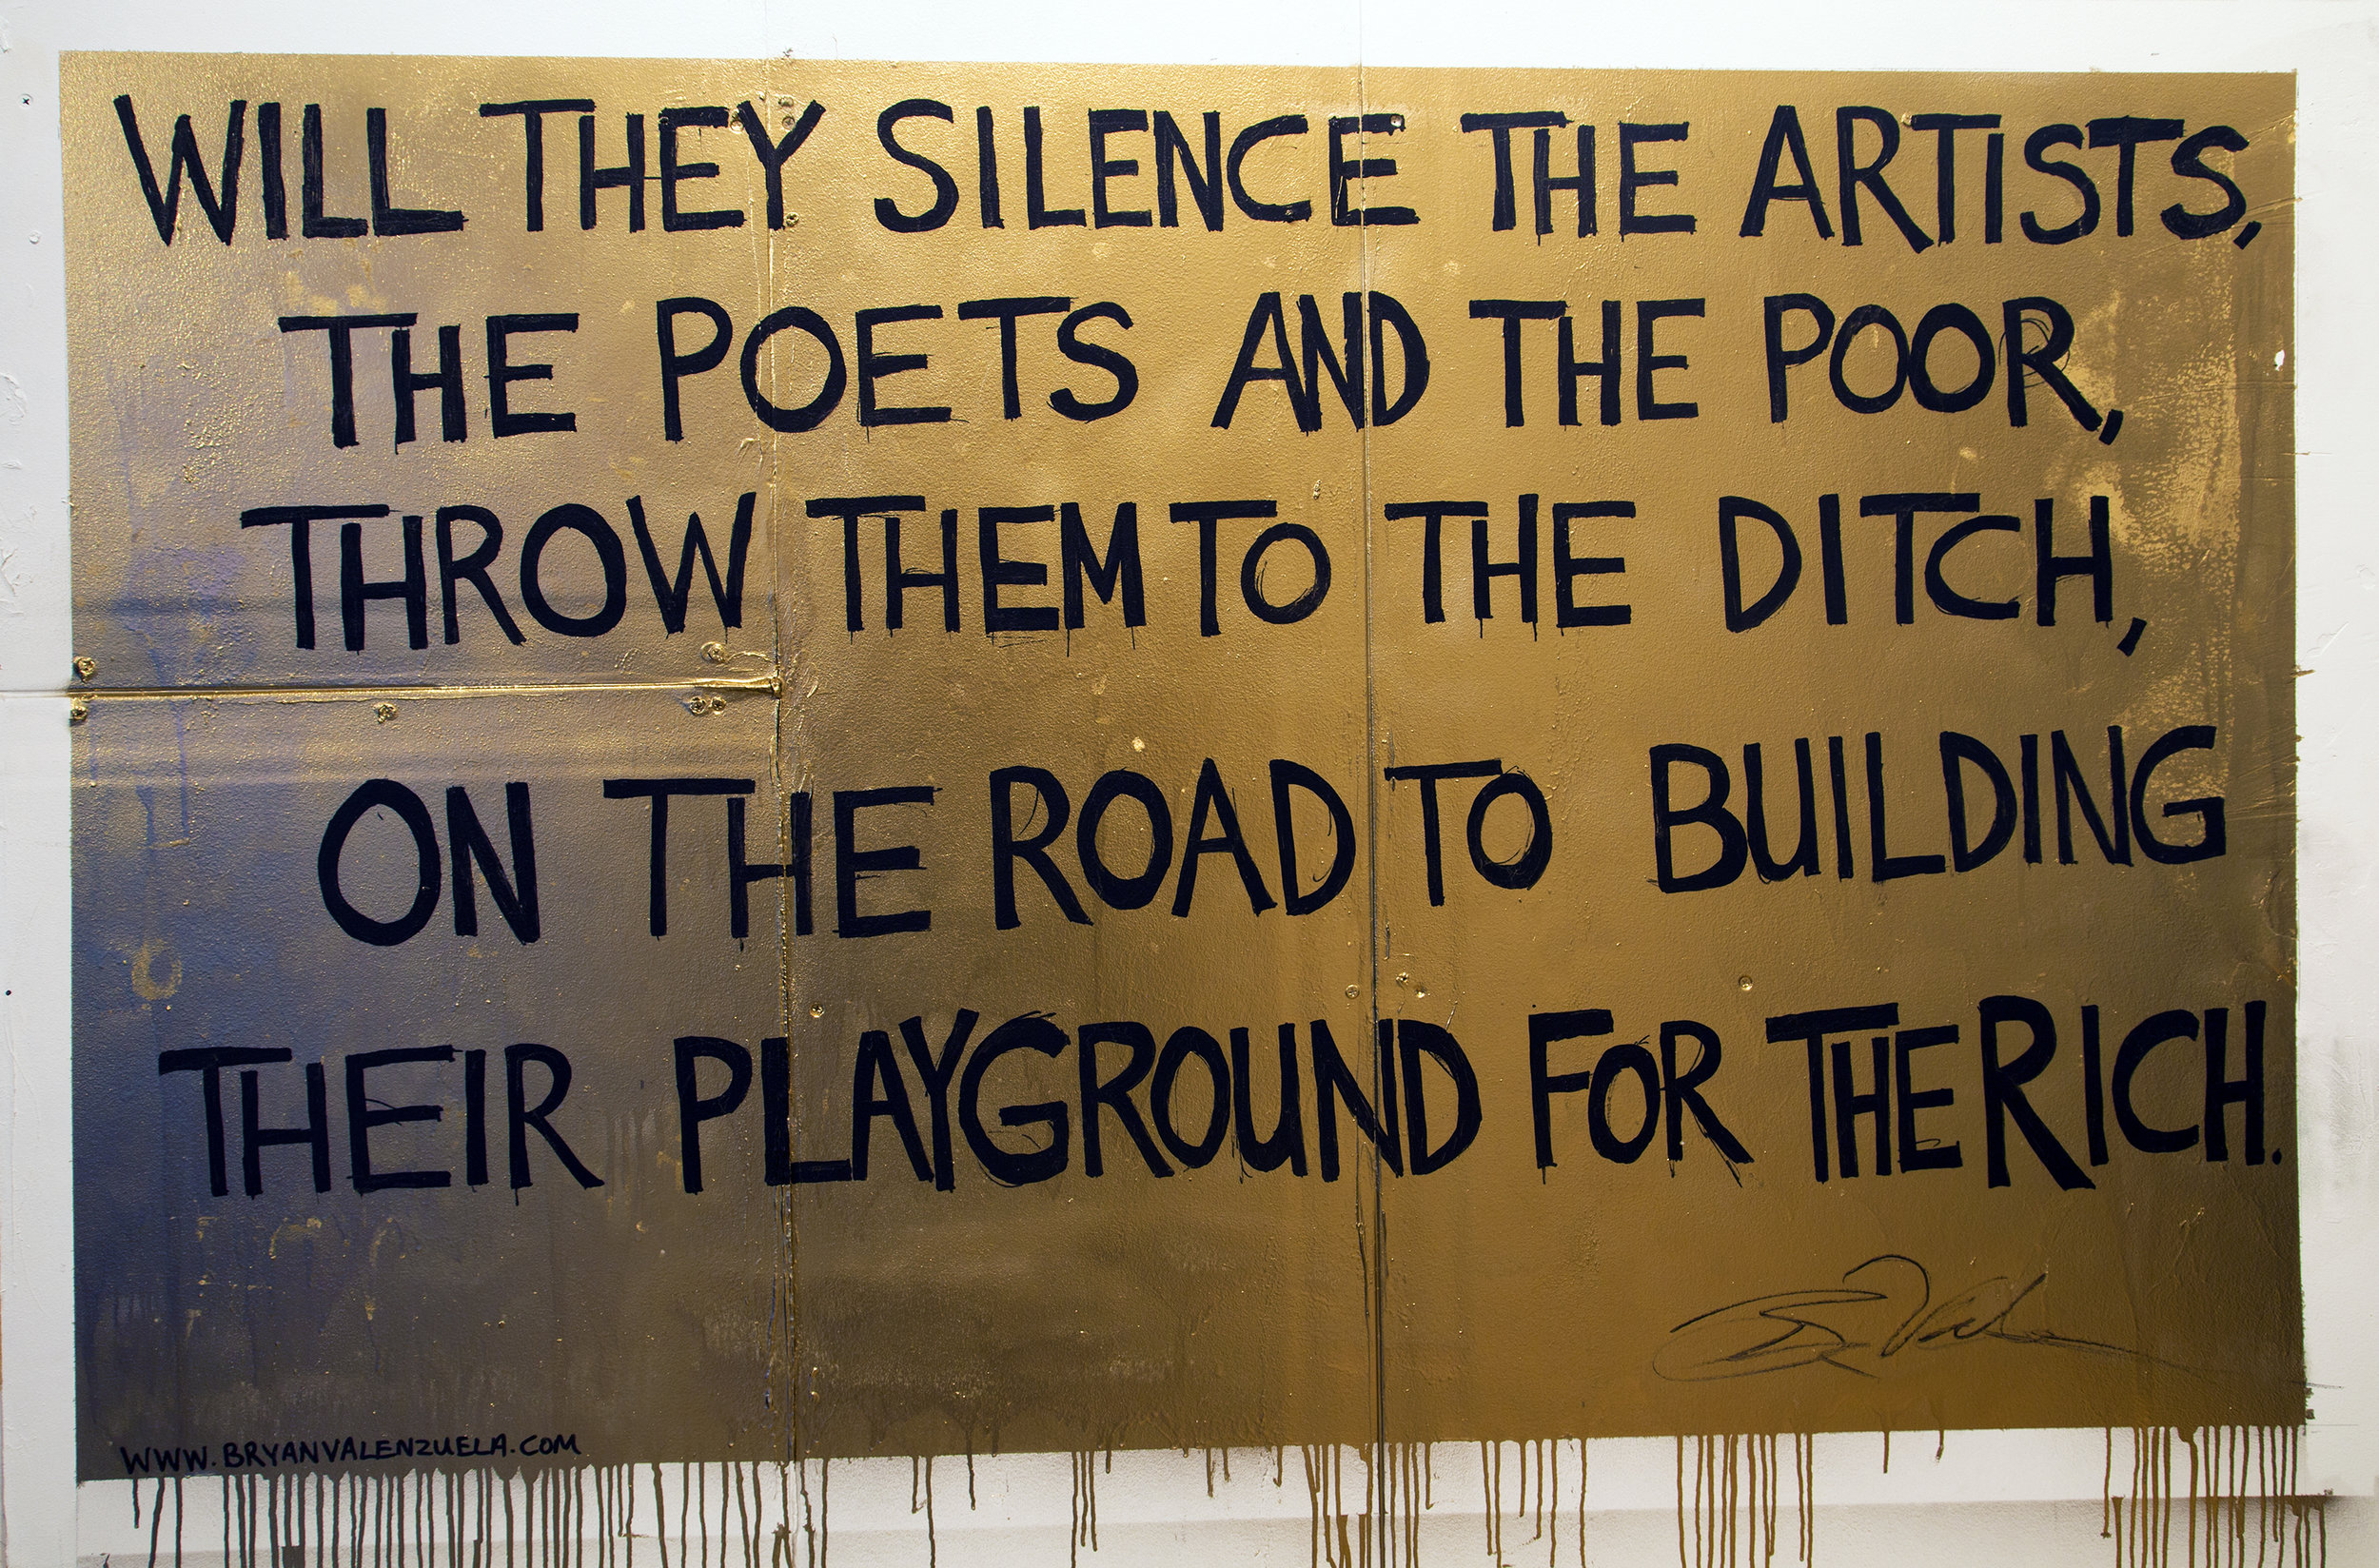 WILL THEY SILENCE THE ARTISTS,
THE POETS AND THE POOR,
THROW THEM TO THE DITCH,
ON THE ROAD TO BUILDING
THEIR PLAYGROUND FOR THE RICH.
WWW.BRYANVALENZUELA.COM